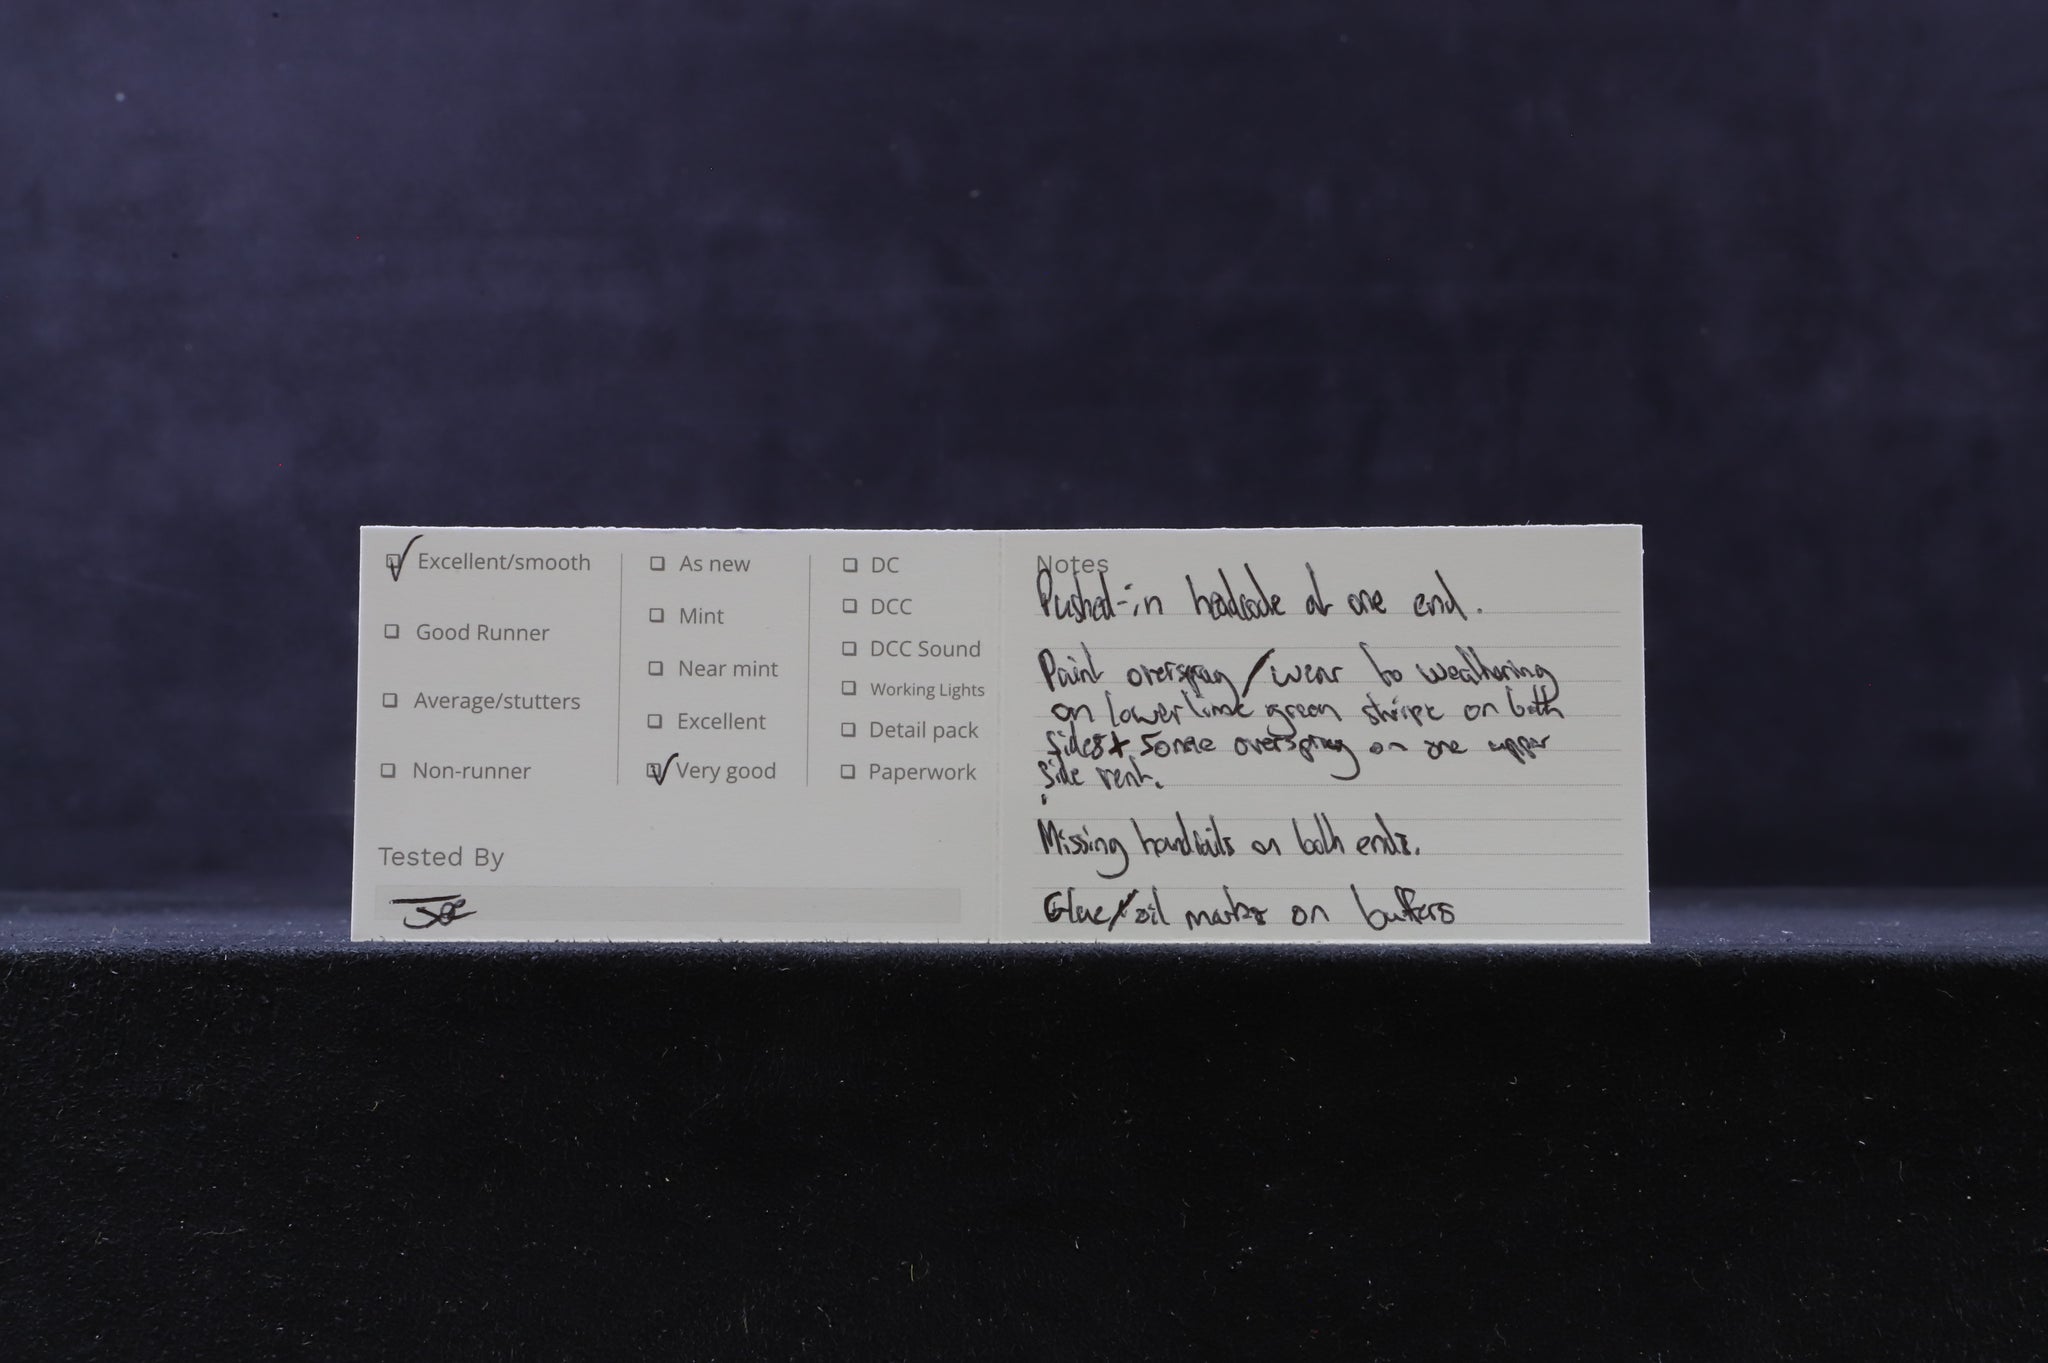 Excellent/smooth
Good Runner
Average/stutters
Non-runner
As new
Mint
Near mint
Excellent
Very good
DC
DCC
DCC Sound
Working Lights
Detail pack
Paperwork
Tested By
Joe
Notes
Pushed-in headcode at one end.
Paint overspray/wear to weathering
on lower lime green stripe on both
sides + some overspray on one upper
side vent.
Missing handrails on both ends.
Glue/oil marks on buffers